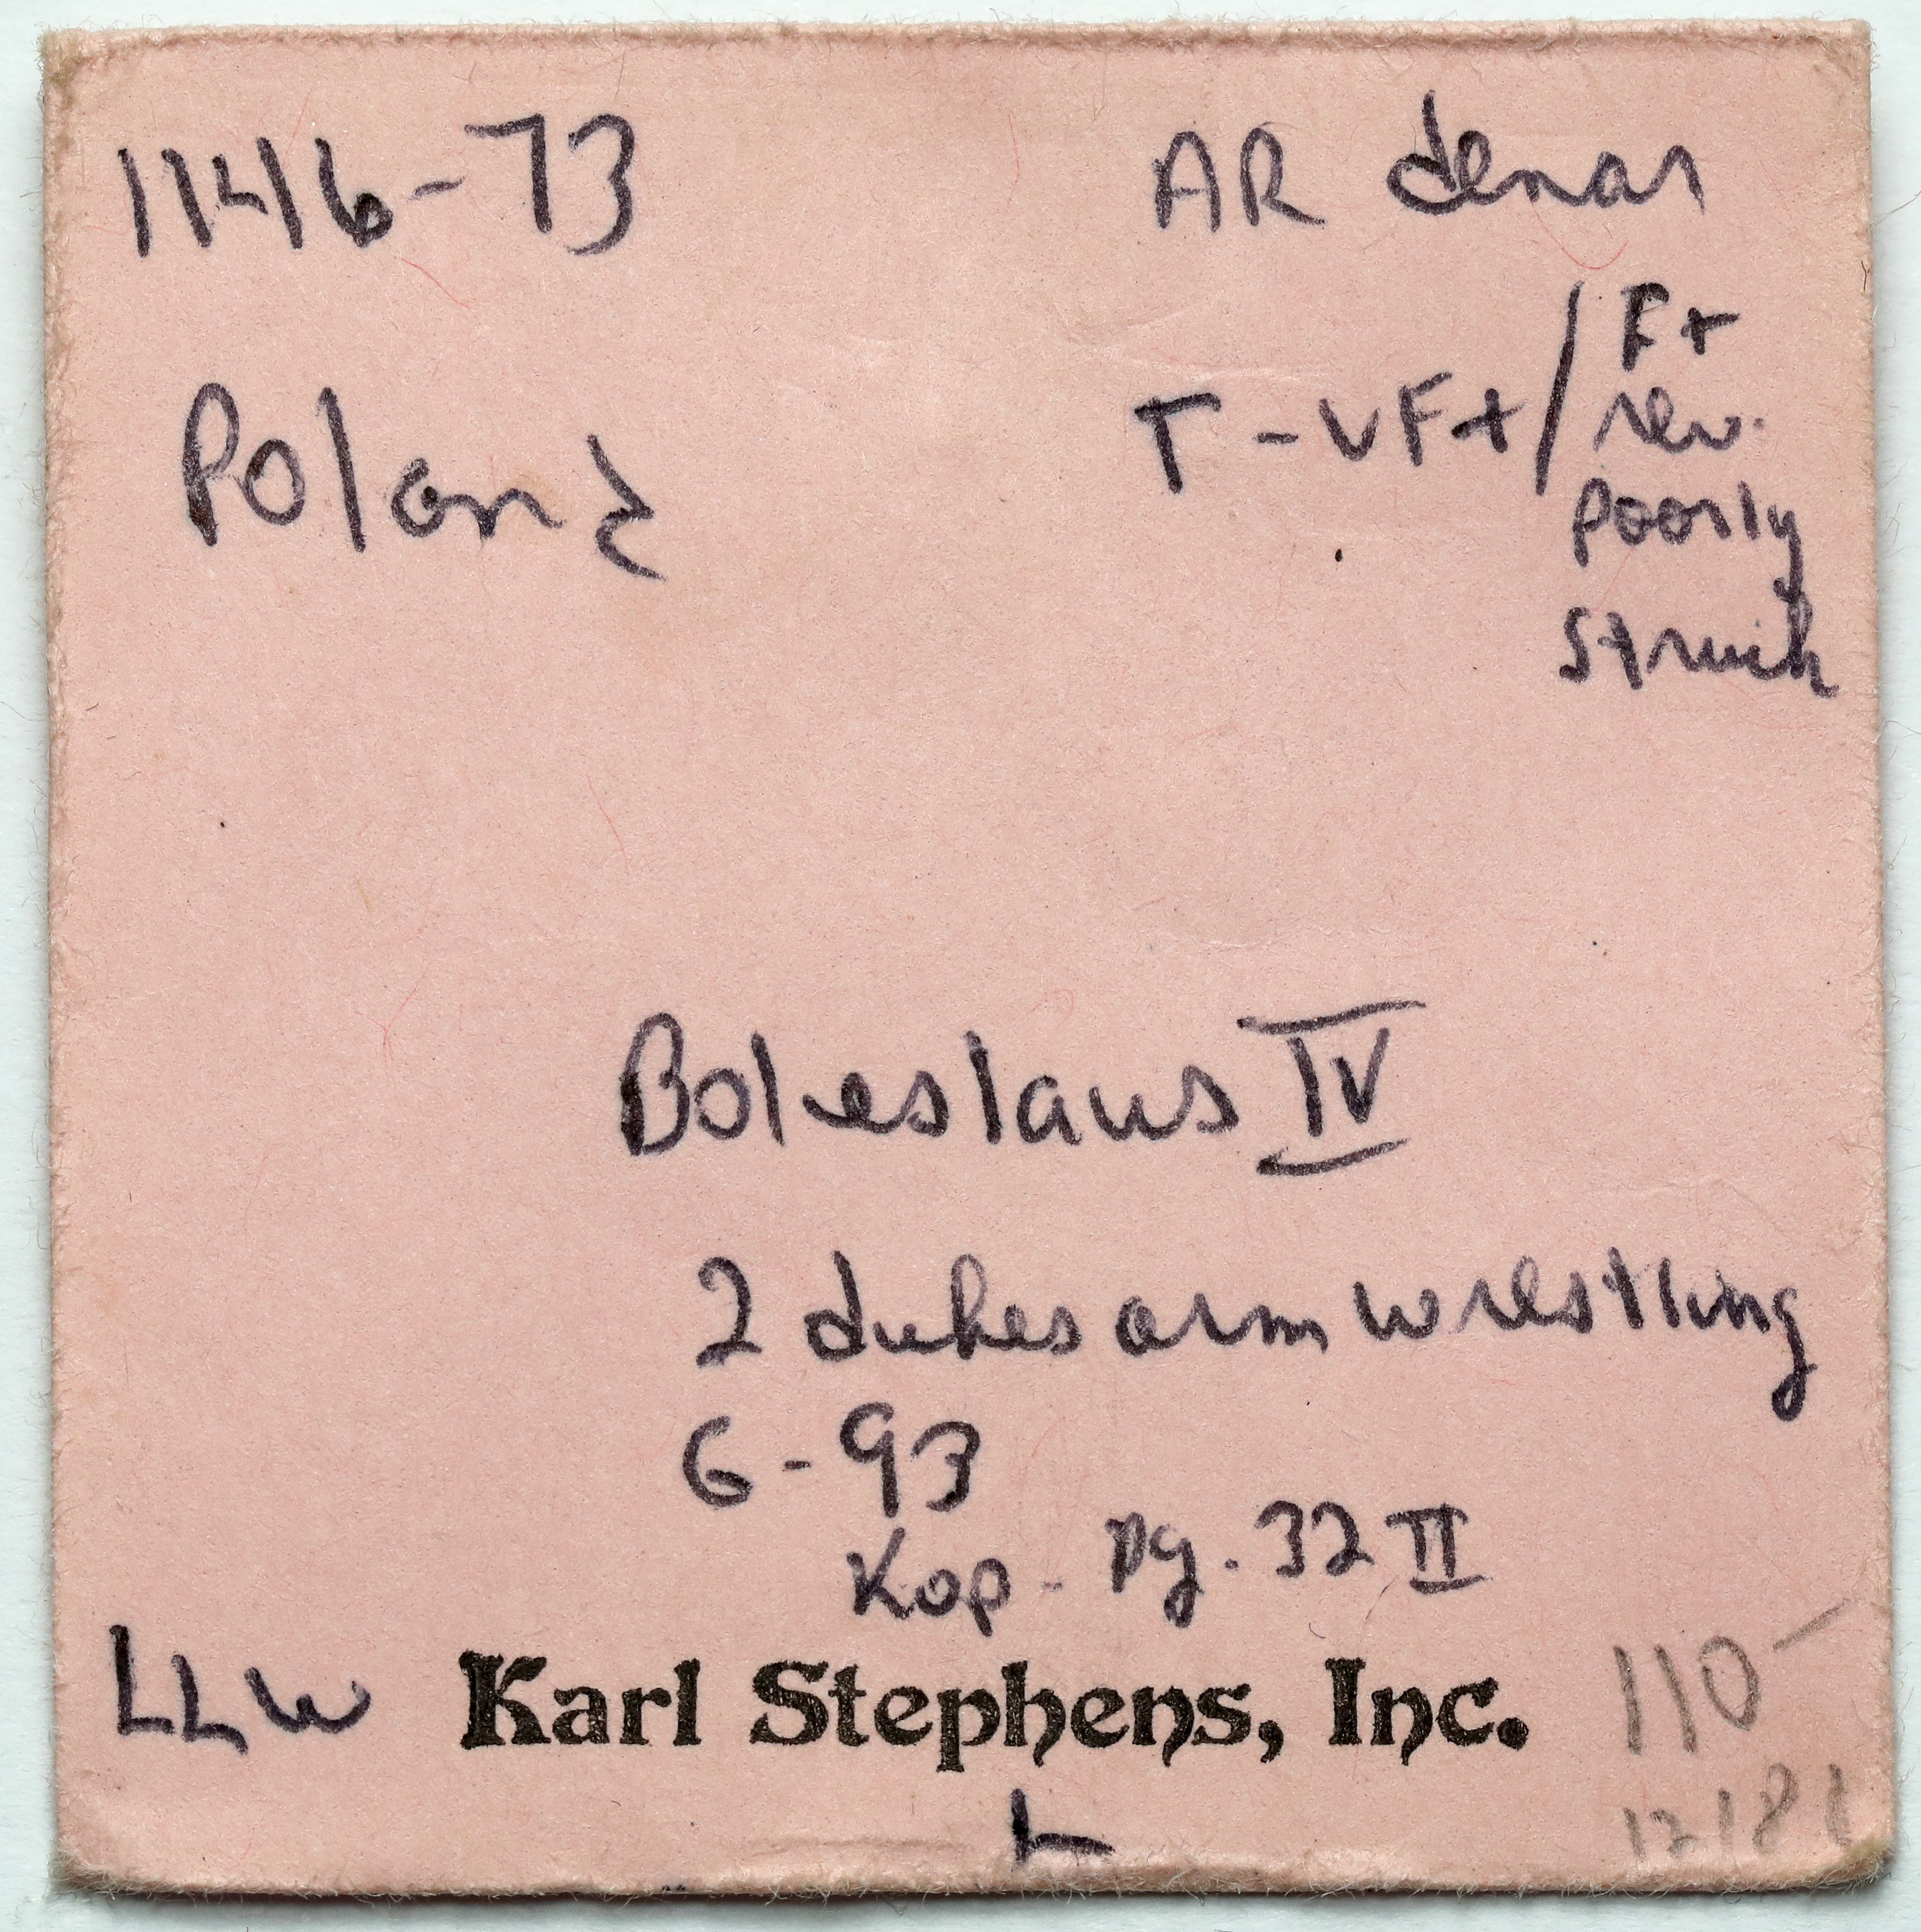 1146-73 AR denar
Poland T-VF+/F+
rev.
poorly
struck
Boleslaus IV
2 dukes arm wrestling
G-93
Kop. pg. 32 II
LLW Karl Stephens, Inc. 110-
L 12/81